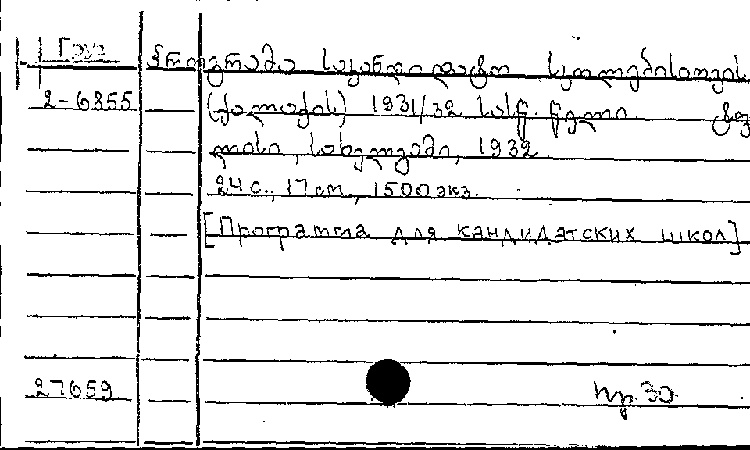 Груз
პროგრამა საკანდიდატო სკოლებისათვის
2-6355
(ქალაქის) 1931/32 სასწ. წელი ტფ
ლისი, სახელგამი, 1932
24 с., 17 см., 1500 экз.
[Программа для кандидатских школ]
27659
Пр. 30